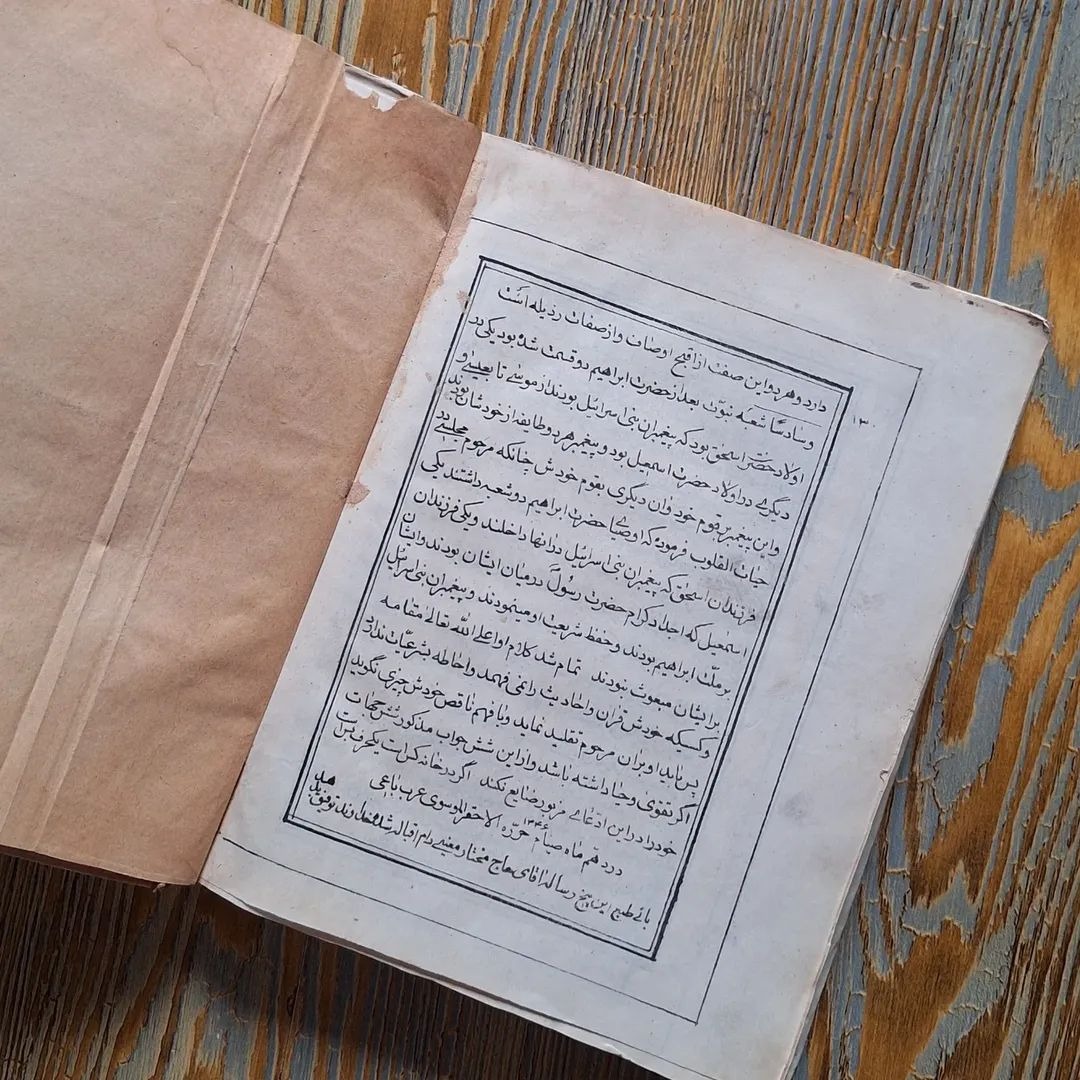 دارد وهر دو این صفت از اقبح اوصاف و از صفات رذیله است
وسادسا شعبه نبوّت بعد از حضرت ابراهیم دو قسمت شده بود یکی در
اولاد حضرت اسحق بود که پیغمبران بنی اسرائیل بودند از موسی تا بعیسی و
دیگری در اولاد حضرت اسمعیل بود و پیغمبر هر دو طایفه از خودشان بودند
واین پیغمبر بر قوم خود وان دیگری بقوم خودش چنانکه مرحوم مجلسی در
حیات القلوب فرموده که اوصیای حضرت ابراهیم دو شعبه داشتند یکی
فرزندان اسحق که پیغمبران بنی اسرائیل در انها داخلند و یکی فرزندان
اسمعیل که اجداد کرام حضرت رسول در میان ایشان بودند وایشان
بر ملت ابراهیم بودند وحفظ شریعت او مینمودند و پیغمبران بنی اسرائیل
بر ایشان مبعوث نبودند تمام شد کلام او اعلی الله تعالی مقامه
وکسیکه خودش قران واحادیث را نمی فهمد واحاطه بشرعیّات ندارد
پس باید او بران مرحوم تقلید نماید وبا فهم ناقص خودش چیزی نگوید
اکر تقوی وحیا داشته باشد واز این شش جواب مذکور شش جهات
خود را در این ادّعای مزبور ضایع نکند اگر در خانه کس است یکحرف بس است
در دهم ماه صیام ۱۳۴۶ حرّره الاحقر الموسوی عرب باغی
بانی طبع این پنج رساله اقای حاج مختار دام اقباله شده خداوند توفیق بدهد
۱۳